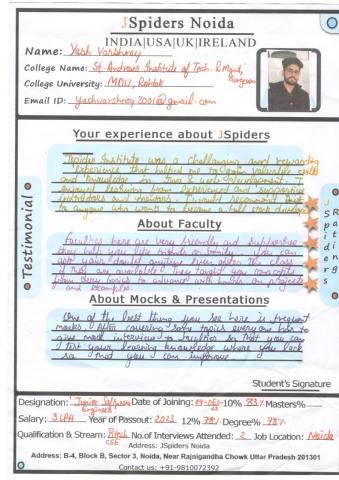 JSpiders Noida
INDIA|USA|UK|IRELAND
Name: Yash Varshney
College Name: St. Andrews Institute of Tech. & Mgmt,
Gurgaon
College University: MDU, Rohtak
Email ID: yashvarshney2001@gmail.com
Your experience about JSpiders
Jspiders Institute was a challenging and rewarding
experience that helped me to gain valuable skills
and knowledge in Java & web development. I
enjoyed learning from experienced and supportive
instructors and mentors. I would recommend
to anyone who wants to become a full stack developer
Testimonial
JSpiders
Rating
About Faculty
Faculties here are very friendly and supportive
you can
ask your doubt anytime even after the class
if they are available. They taught you concepts
from very basics to advance with hands on projects
and examples.
About Mocks & Presentations
One of the best thing you see here is frequent
mocks. After covering some topics every one has to
give mock interviews so that you can
test your learning knowledge where you lack
so that you can improve.
Student's Signature
Designation: Junior Software Engineer Date of Joining: 10% 83% Masters%
Salary: 3 LPA Year of Passout: 2023 12% 78% Degree% 75%
Qualification & Stream: Btech CSE No.of Interviews Attended: 2 Job Location: Noida
Address: JSpiders Noida
Address: B-4, Block B, Sector 3, Noida, Near Rajnigandha Chowk Uttar Pradesh 201301
Contact us: +91-9810072392